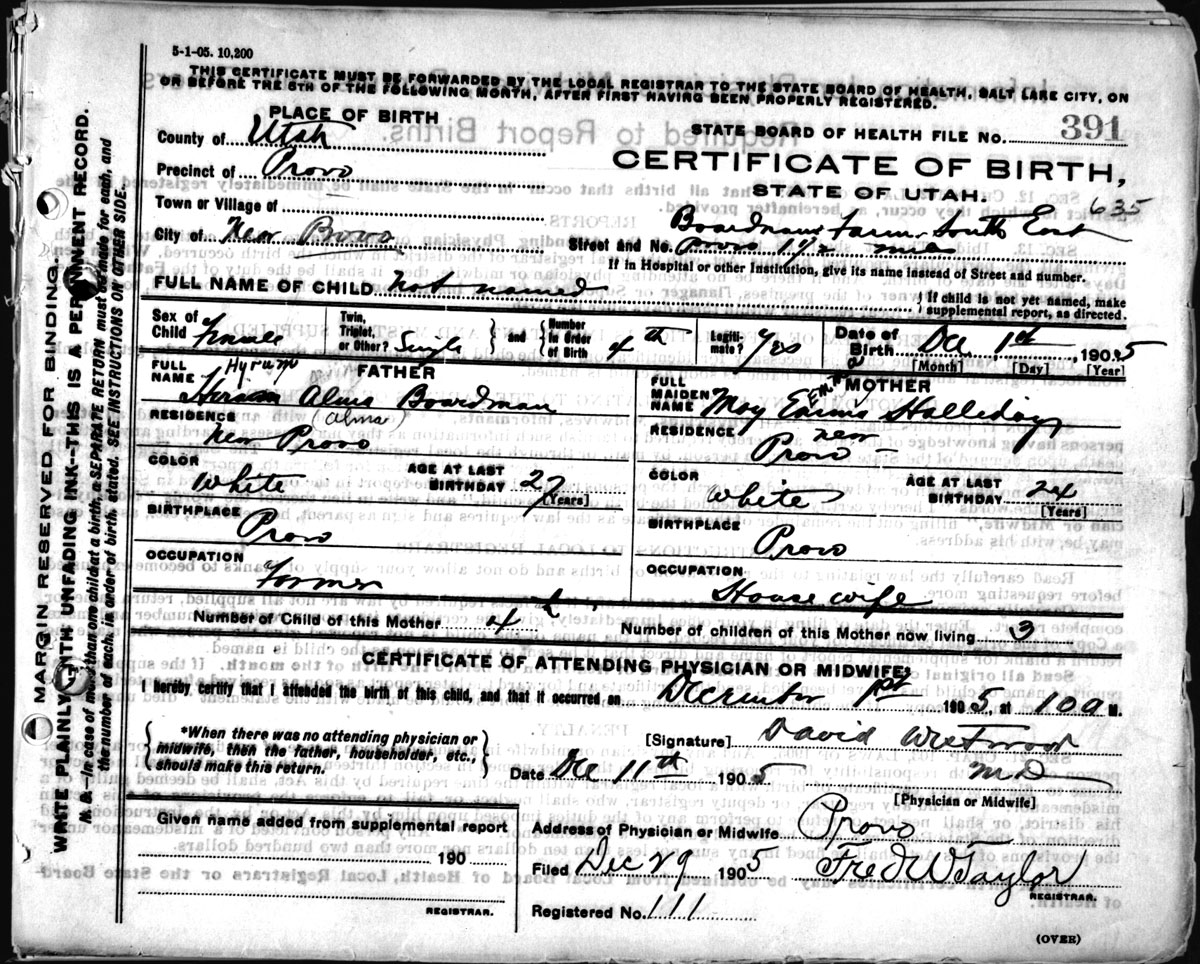 5-1-05. 10,200
THIS CERTIFICATE MUST BE FORWARDED BY THE LOCAL REGISTRAR TO THE STATE BOARD OF HEALTH, SALT LAKE CITY, ON
OR BEFORE THE 5TH OF THE FOLLOWING MONTH, AFTER FIRST HAVING BEEN PROPERLY REGISTERED.
PLACE OF BIRTH
County of Utah
Precinct of Provo
Town or Village of
City of Near Provo
STATE BOARD OF HEALTH FILE No. 391
CERTIFICATE OF BIRTH,
STATE OF UTAH.
635
Boardman Farm South East
Street and No. Provo 1 1/2 miles
If in Hospital or other Institution, give its name instead of Street and number.
FULL NAME OF CHILD Not named
If child is not yet named, make
supplemental report, as directed.
Sex of Child Female
Twin, Triplet, or Other? Single
and Number in Order of Birth 4th
Legitimate? Yes
Date of Birth Dec 1st, 1905
[Month] [Day] [Year]
FATHER
FULL NAME Hyrum Alma Boardman
(Alma)
RESIDENCE Near Provo
COLOR White
AGE AT LAST BIRTHDAY 27
[Years]
BIRTHPLACE Provo
OCCUPATION Farmer
MOTHER
FULL MAIDEN NAME May Emma Halliday
RESIDENCE near Provo
COLOR White
AGE AT LAST BIRTHDAY 24
[Years]
BIRTHPLACE Provo
OCCUPATION House wife
Number of Child of this Mother 4th
Number of children of this Mother now living 3
CERTIFICATE OF ATTENDING PHYSICIAN OR MIDWIFE*
I hereby certify that I attended the birth of this child, and that it occurred on December 1st 1905, at 10 a M.
*When there was no attending physician or
midwife, then the father, householder, etc.,
should make this return.
[Signature] David Westwood
M D
[Physician or Midwife]
Date Dec 11th 1905
Given name added from supplemental report
190
REGISTRAR.
Address of Physician or Midwife Provo
Filed Dec 29 1905 Fred W Taylor
REGISTRAR.
Registered No. 111
(OVER)
MARGIN RESERVED FOR BINDING.
WRITE PLAINLY WITH UNFADING INK--THIS IS A PERMANENT RECORD.
N. B.--In case of more than one child at a birth, a SEPARATE RETURN must be made for each, and
the number of each, in order of birth, stated. SEE INSTRUCTIONS ON OTHER SIDE.